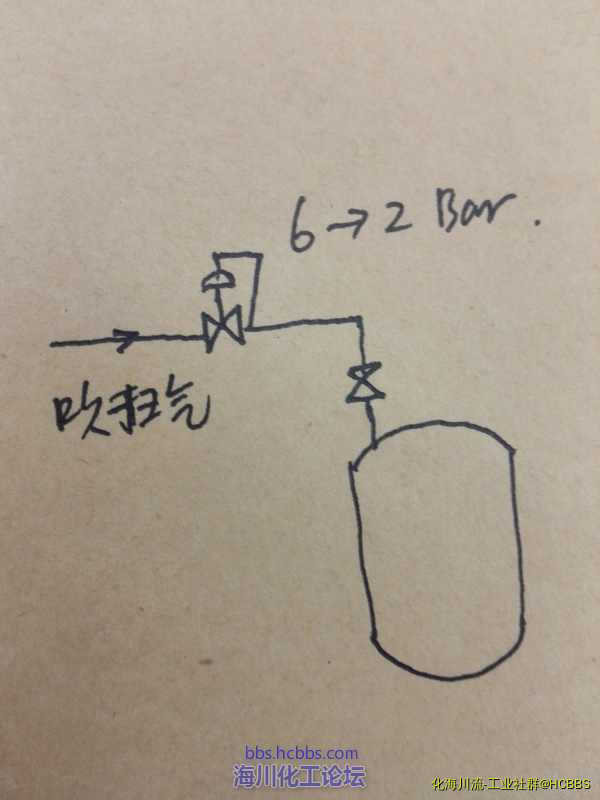 6→2 Bar.
吹扫气
bbs.hcbbs.com
海川化工论坛
化海川流-工业社群@HCBBS